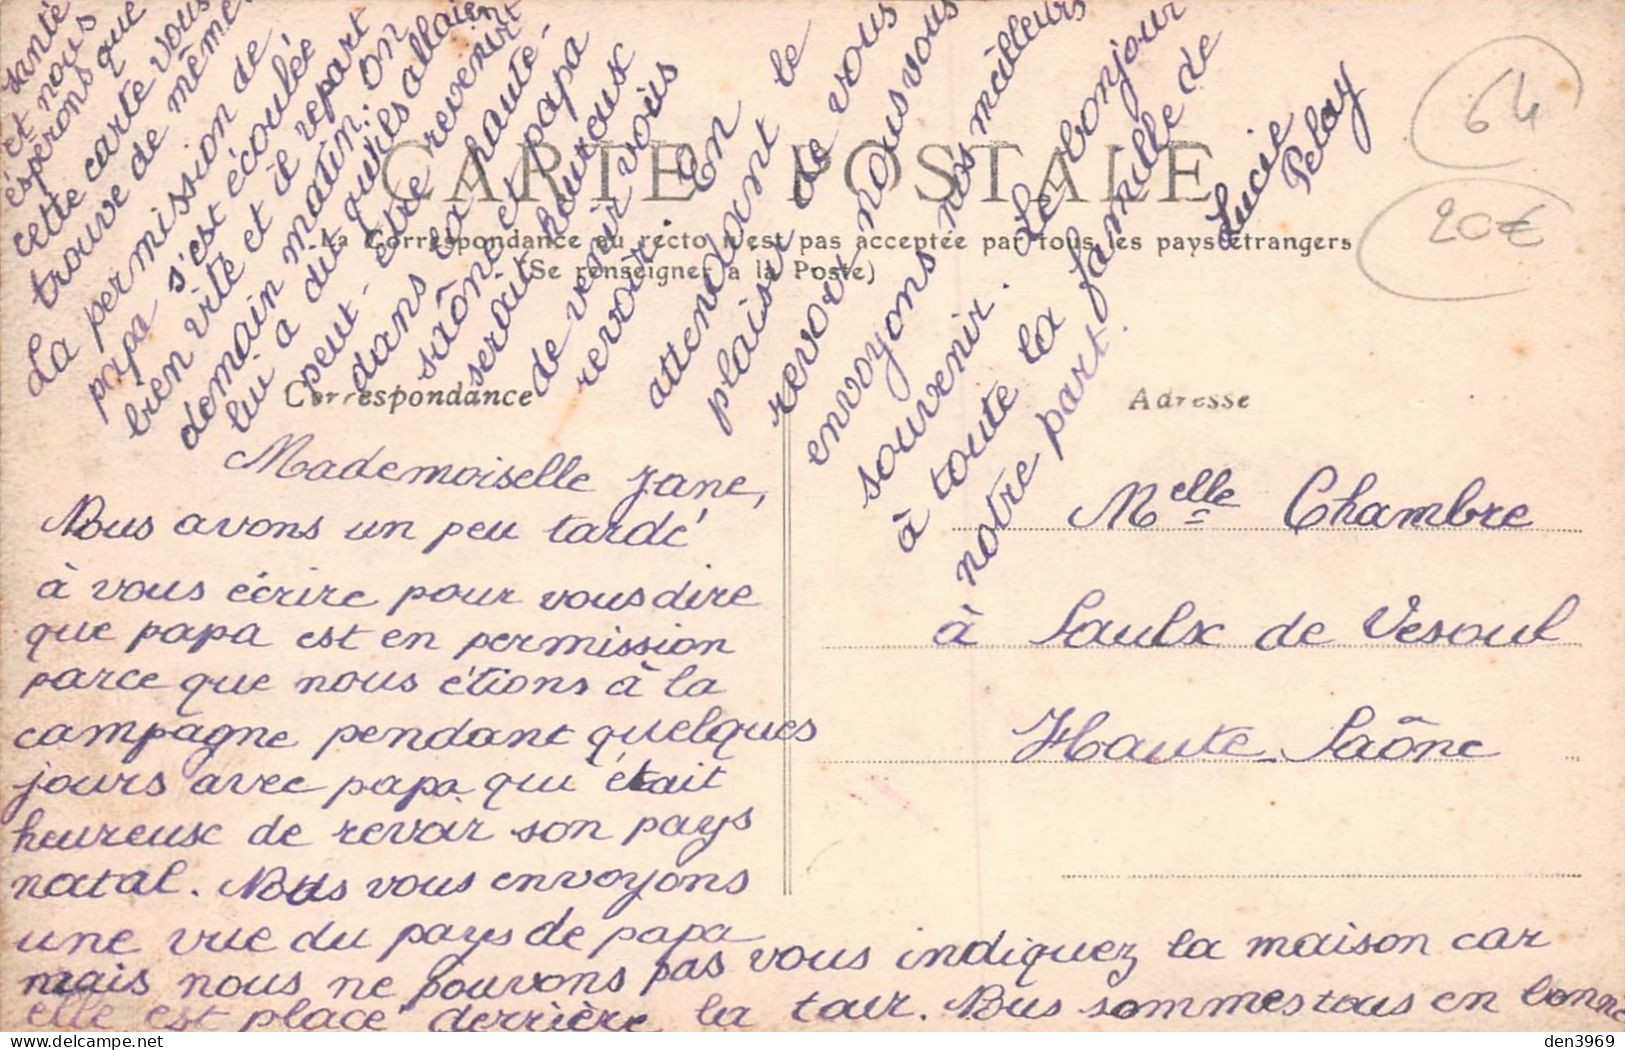 CARTE POSTALE
La Correspondance au recto n'est pas acceptée par tous les pays étrangers
(Se renseigner à la Poste)
Correspondance
Adresse
Mademoiselle Jane,
Nous avons un peu tardé
à vous écrire pour vous dire
que papa est en permission
parce que nous étions à la
campagne pendant quelques
jours avec papa qui était
heureux de revoir son pays
natal. Nous vous envoyons
une vue du pays de papa
mais nous ne pouvons pas vous indiquez la maison car
elle est placé derrière la tour. Nous sommes tous en bonne
santé
et nous
éspérons que
cette carte vous
trouve de même.
La permission de
papa s'est écoulée
bien vite et il repart
demain matin. On
lui a dit qu'ils allaient
peut-être revenir
dans la haute-
saône et papa
serait heureux
de venir vous
revoir. En
attendant le
plaisir de vous
revoir nous vous
envoyons nos meilleurs
souvenir. Le bonjour
à toute la famille de
notre part.
Lucie
Pelay
Melle Chambre
à Saulx de Vesoul
Haute-Saône
64
20€
den3969